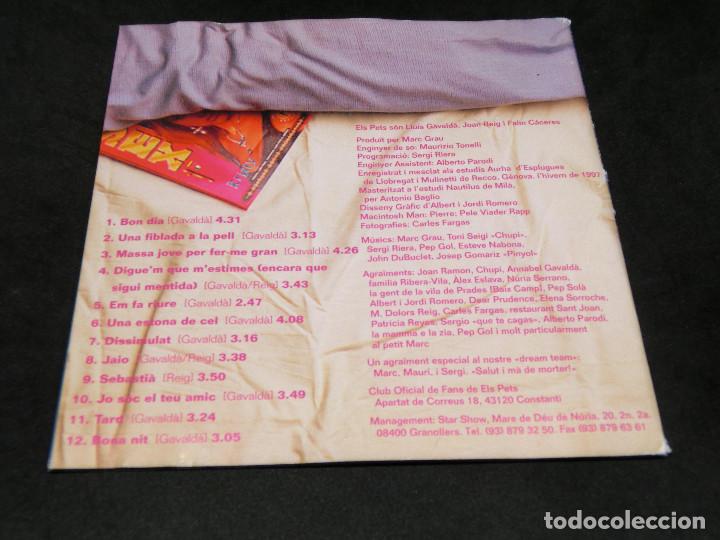 1. Bon dia [Gavaldà] 4.31
2. Una fiblada a la pell [Gavaldà] 3.13
3. Massa jove per fer-me gran [Gavaldà] 4.26
4. Digue'm que m'estimes (encara que
sigui mentida) [Gavaldà/Reig] 3.43
5. Em fa riure [Gavaldà] 2.47
6. Una estona de cel [Gavaldà] 4.08
7. Dissimulat [Gavaldà] 3.16
8. Jaio [Gavaldà/Reig] 3.38
9. Sebastià [Reig] 3.50
10. Jo sóc el teu amic [Gavaldà] 3.49
11. Tard [Gavaldà] 3.24
12. Bona nit [Gavaldà] 3.05
Els Pets són Lluís Gavaldà, Joan Reig i Falin Cáceres
Produït per Marc Grau
Enginyer de so: Maurizio Tonelli
Programació: Sergi Riera
Enginyer Assistent: Alberto Parodi
Enregistrat i mesclat als estudis Aurha d'Esplugues
de Llobregat i Mulinetti de Recco, Gènova, l'hivern de 1997
Masteritzat a l'estudi Nautilus de Milà,
per Antonio Baglio
Disseny Gràfic d'Albert i Jordi Romero
Macintosh Man: Pierre; Pele Viader Rapp
Fotografies: Carles Fargas
Músics: Marc Grau, Toni Saigi «Chupi»,
Sergi Riera, Pep Gol, Esteve Nabona,
John DuBuclet, Josep Gomariz «Pinyol»
Agraïments: Joan Ramon, Chupi, Annabel Gavaldà,
família Ribera-Vila, Àlex Eslava, Núria Serrano,
la gent de la vila de Prades [Baix Camp], Pep Solà
Albert i Jordi Romero, Dear Prudence, Elena Sorroche,
M. Dolors Reig, Carles Fargas, restaurant Sant Joan,
Patricia Reyes, Sergio «que te cagas», Alberto Parodi,
la mamma e la zia, Pep Gol i molt particularment
al petit Marc
Un agraïment especial al nostre «dream team»:
Marc, Mauri, i Sergi. «Salut i mà de morter!»
Club Oficial de Fans de Els Pets
Apartat de Correus 18, 43120 Constantí
Management: Star Show, Mare de Déu de Núria, 20, 2n. 2a.
08400 Granollers. Tel. (93) 879 32 50. Fax (93) 879 63 61
todocoleccion